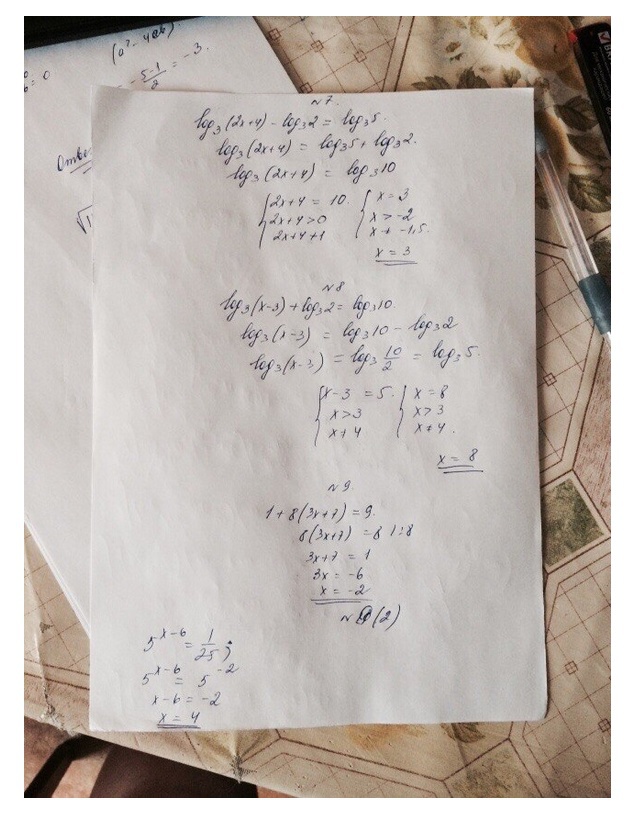 (a²-4ab).
= -5-1/2 = -3.
= 0
√1
N7.
log₃(2x+4) - log₃2 = log₃5.
log₃(2x+4) = log₃5 + log₃2.
log₃(2x+4) = log₃10
{2x+4 = 10. {x = 3
2x+4>0 x>-2
2x+4≠1 x ≠ -1,5.
x = 3
N8
log₃(x-3) + log₃2 = log₃10.
log₃(x-3) = log₃10 - log₃2
log₃(x-3) = log₃ 10/2 = log₃5.
{x-3 = 5. {x = 8
x>3 x>3
x≠4 x≠4.
x = 8
N9.
1+8(3x+7)=9.
8(3x+7) = 8 |:8
3x+7 = 1
3x = -6
x = -2
(2)
5^(x-6) = 1/25;
5^(x-6) = 5^(-2)
x-6 = -2
x = 4